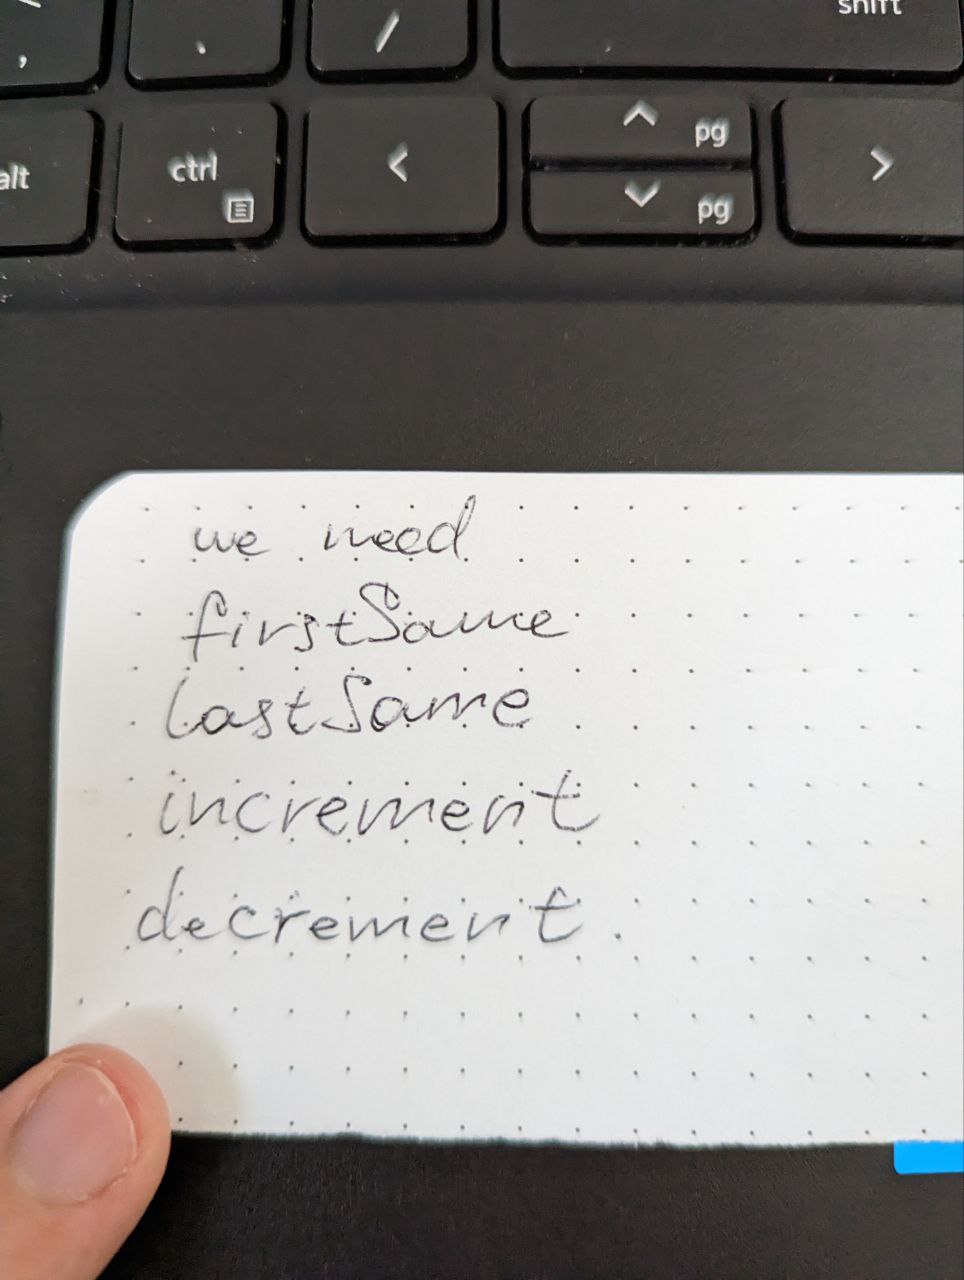 shift
, . /
alt ctrl < ^ pg >
pg
we need
firstSame
lastSame
increment
decrement.